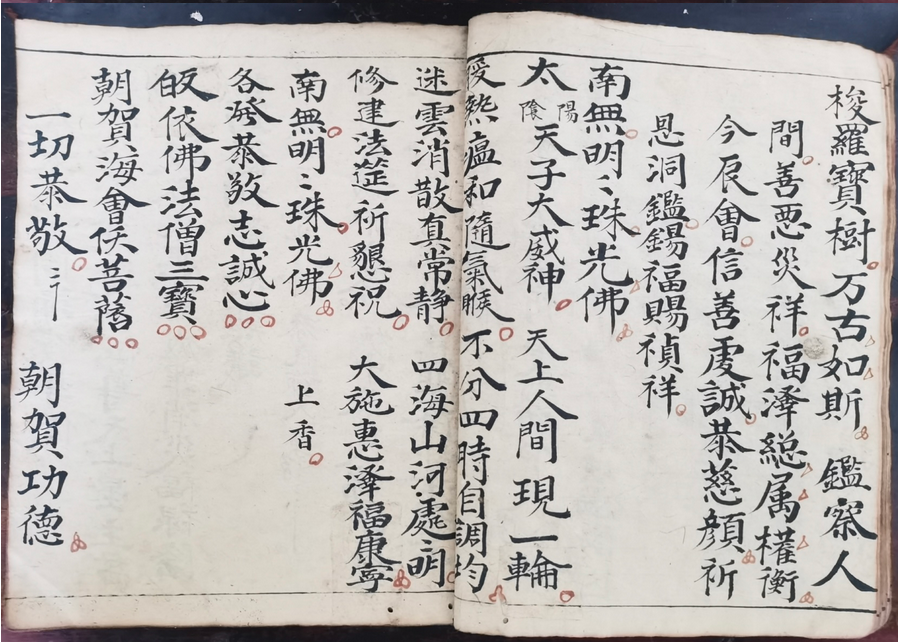 梭羅寶樹万古如斯　鑑察人
間善悪災祥福泽総属權衡
今辰會信善虔誠恭慈顔祈
恩洞鑑錫福賜禎祥
南無明〻珠光佛
太陽陰天子大威神　天上人間現一輪
煖熱瘟和隨氣㬋　不分四時自調均
迷雲消散真常静　四海山河處〻明
修建法莚祈懇祝　大施惠泽福康寧
南無明〻珠光佛　上香
各發恭敬志誠心
皈依佛法僧三寳
朝賀海會佛菩薩
一切恭敬　朝賀功德